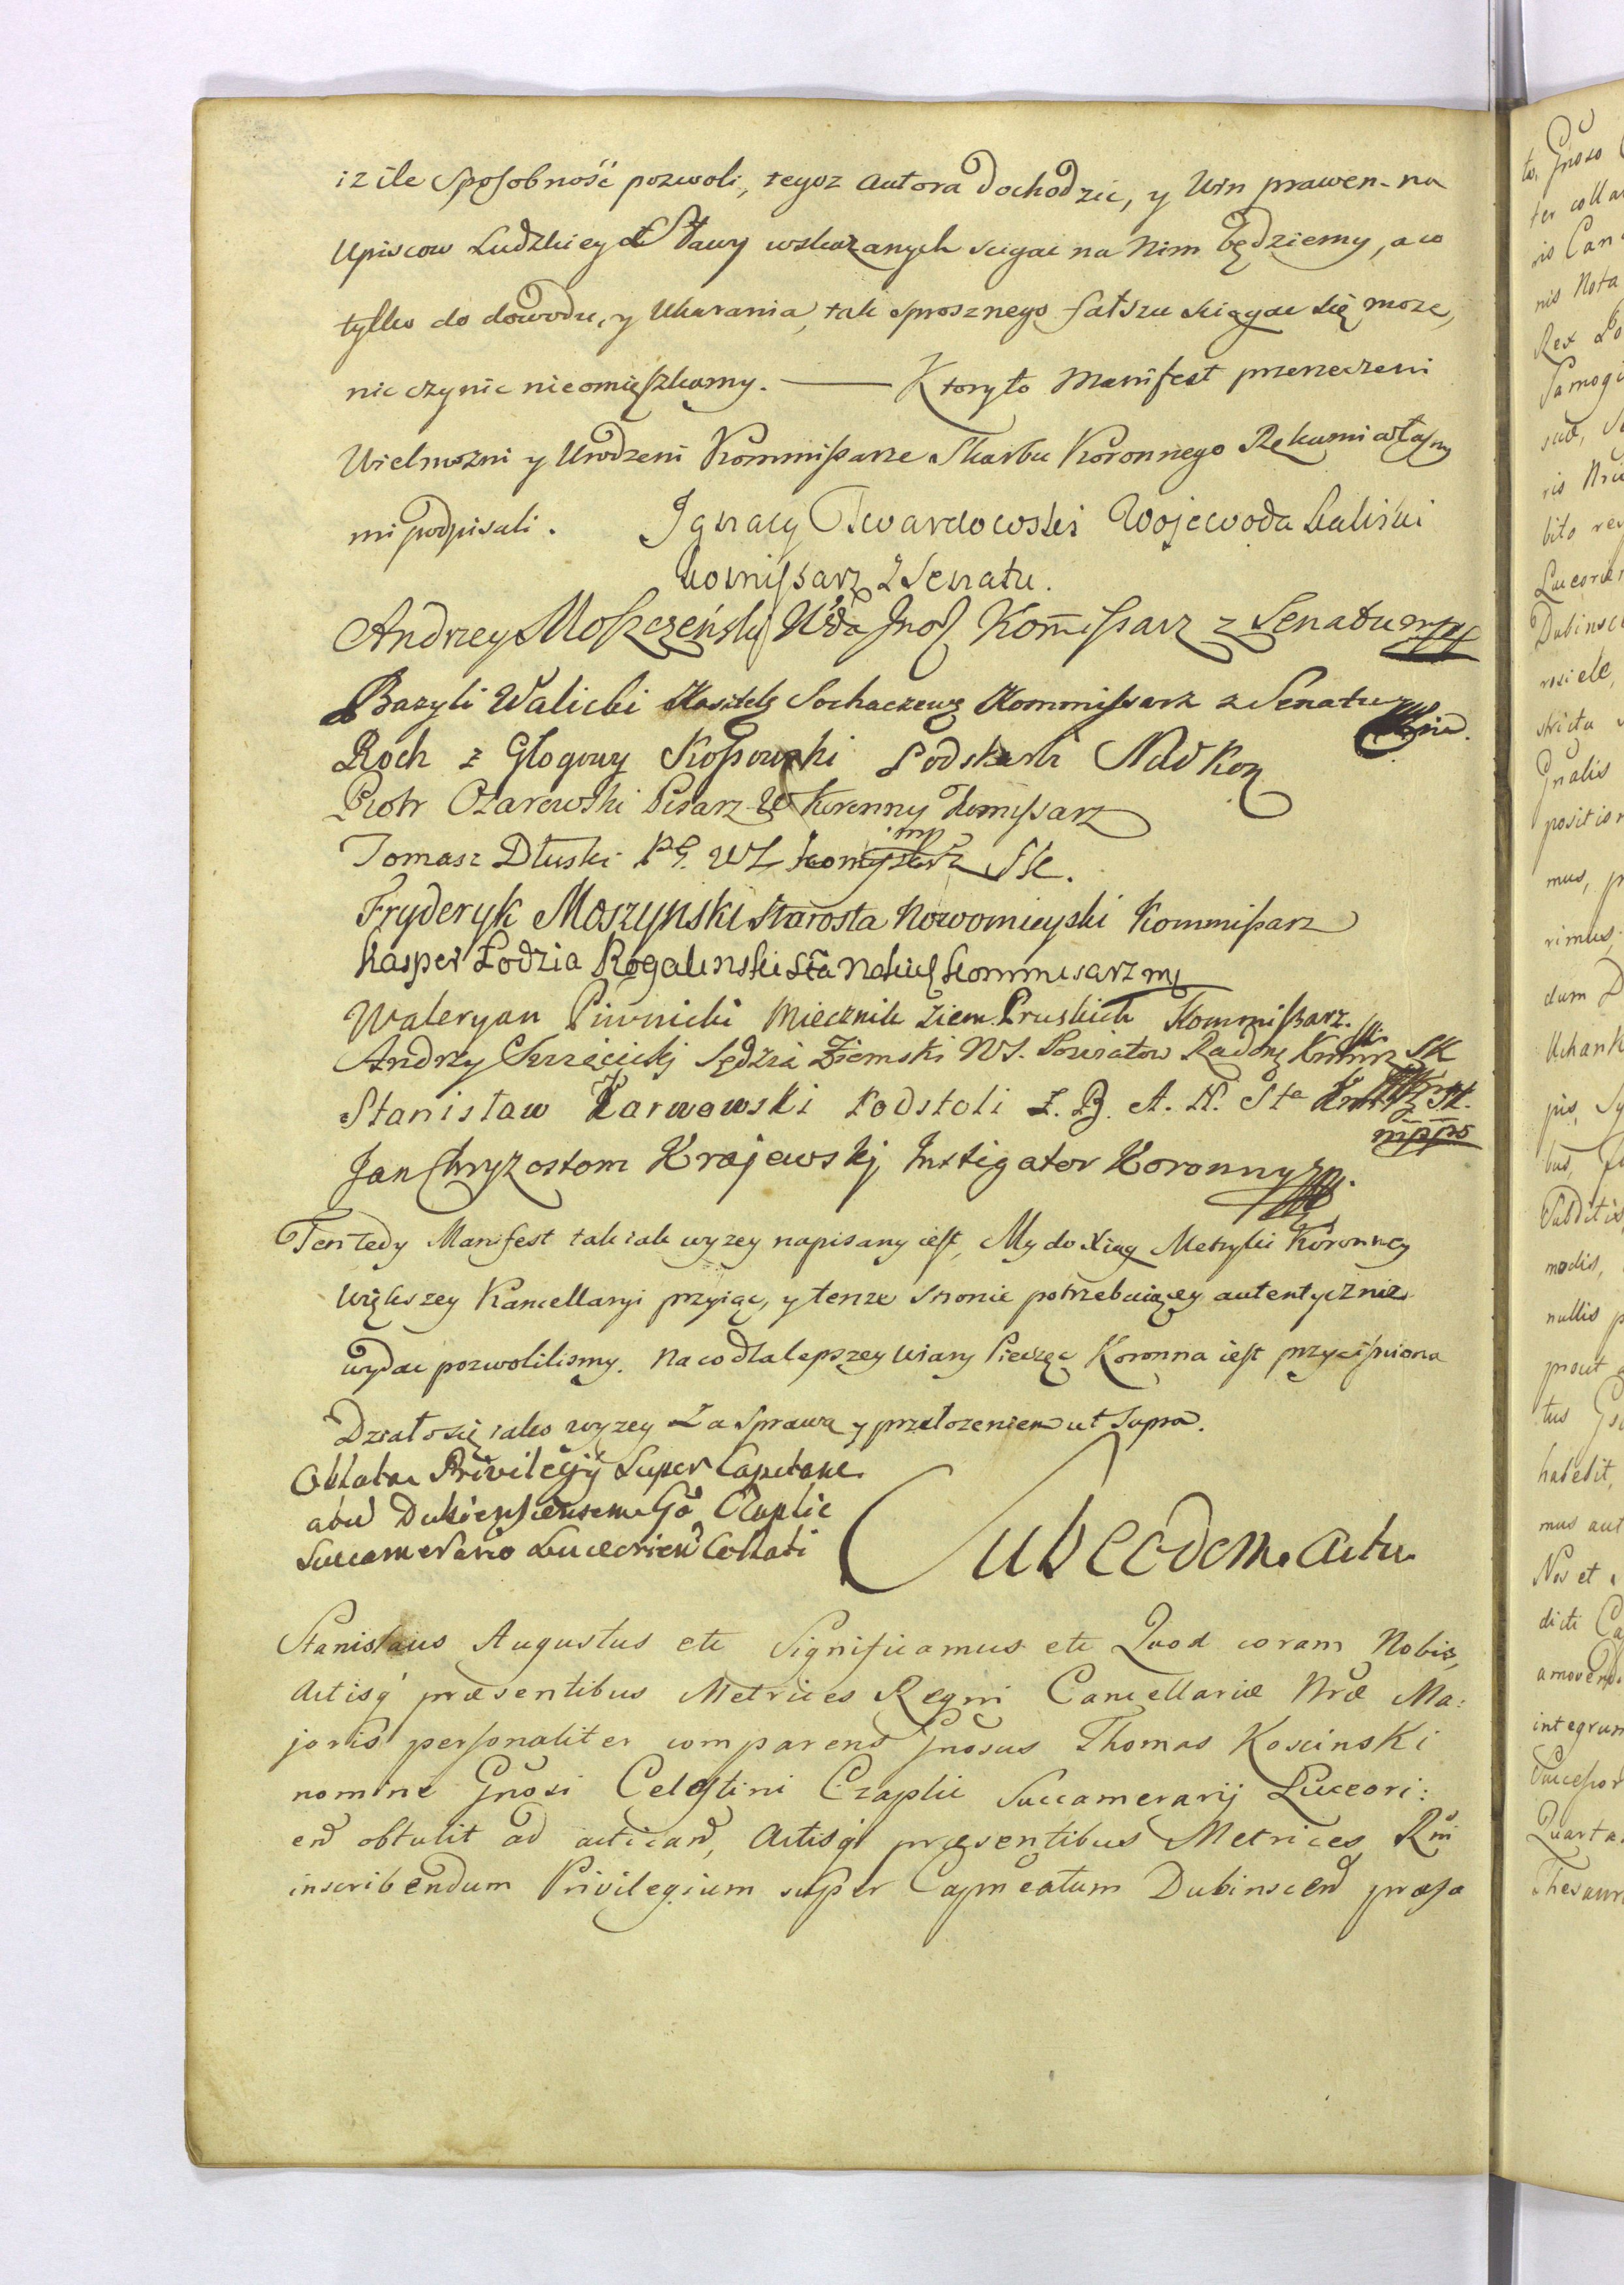 iz ile Sposobność pozwoli, tegoz Autora dochodzic, y Win prawem na
Upiscow Ludzkiey Sławy wskazanych scigac na Nim będziemy, a co
tylko do dowodu, y Ukarania, tak sprosznego fałszu sciągac się moze,
nic czynic nieomięszkamy. — Ktoryto Manifest przerzeczeni
Wielmozni y Urodzeni Kommissarze Skarbu Koronnego Rękami własny
mi podpisali. Ignacy Twardowski Wojewoda Kaliski
Komissarz z Senatu.
Andrzey Moszczeński Wda Inof Kommissarz z Senatu mpp
Bazyli Walicki Kasztel Sochaczews Kommissarz z Senatu
Roch z Głogowy Kossowski Podskarbi Nad Kor
Piotr Ozarowski Pisarz W Koronny Komissarz
Tomasz Dłuski PG. WL Komissarz SK. mp
Fryderyk Moszynski Starosta Nowomieyski Kommissarz
Kasper Łodzia Rogalinski Sta Nakiel Kommisarz mp
Waleryan Piwnicki Miecznik Ziem Pruskich Kommissarz.
Andrzy Sędzia Ziemski WS. Powiatow Radom SK
Stanisław Karwowski Podstoli Z. B. A. N. Sta SK. mppo
Jan Chryzostom Krajewskj Instigator Koronny
Ten tedy Manifest tak iak wyzey napisany iest, My do Xiąg Metryki Koronney
Większey Kancellaryi przyiąc, y tenze stronie potrzebuiącey autentycznie
wydac pozwolilismy. Na co dla lepszey wiary Pieczęc Koronna iest przycisniona
Działo się iako wyzey Za Sprawą y przełozeniem ut Supra.
Oblatae Privilegij Super Capitane
atu Dubiensciensem Go Czaplic
Succamerario Luceorien Collati
Sub eodem. Actu.
Stanislaus Augustus etc Significamus etc Quod coram Nobis,
Actisq praesentibus Metrices Regni Cancellariae Nrae Ma:
joris personaliter comparens Gnosus Thomas Koscinski
nomine Gnosi Celestini Czaplic Succamerarij Luceori:
en obtulit ad acticand, Actisq praesentibus Metrices Rni
inscribendum Privilegium super Capneatum Dubinscien praesa